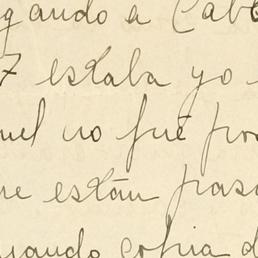 gando a Cab
7 estaba yo
uel no fué pos
ue están pasa
uando copia d